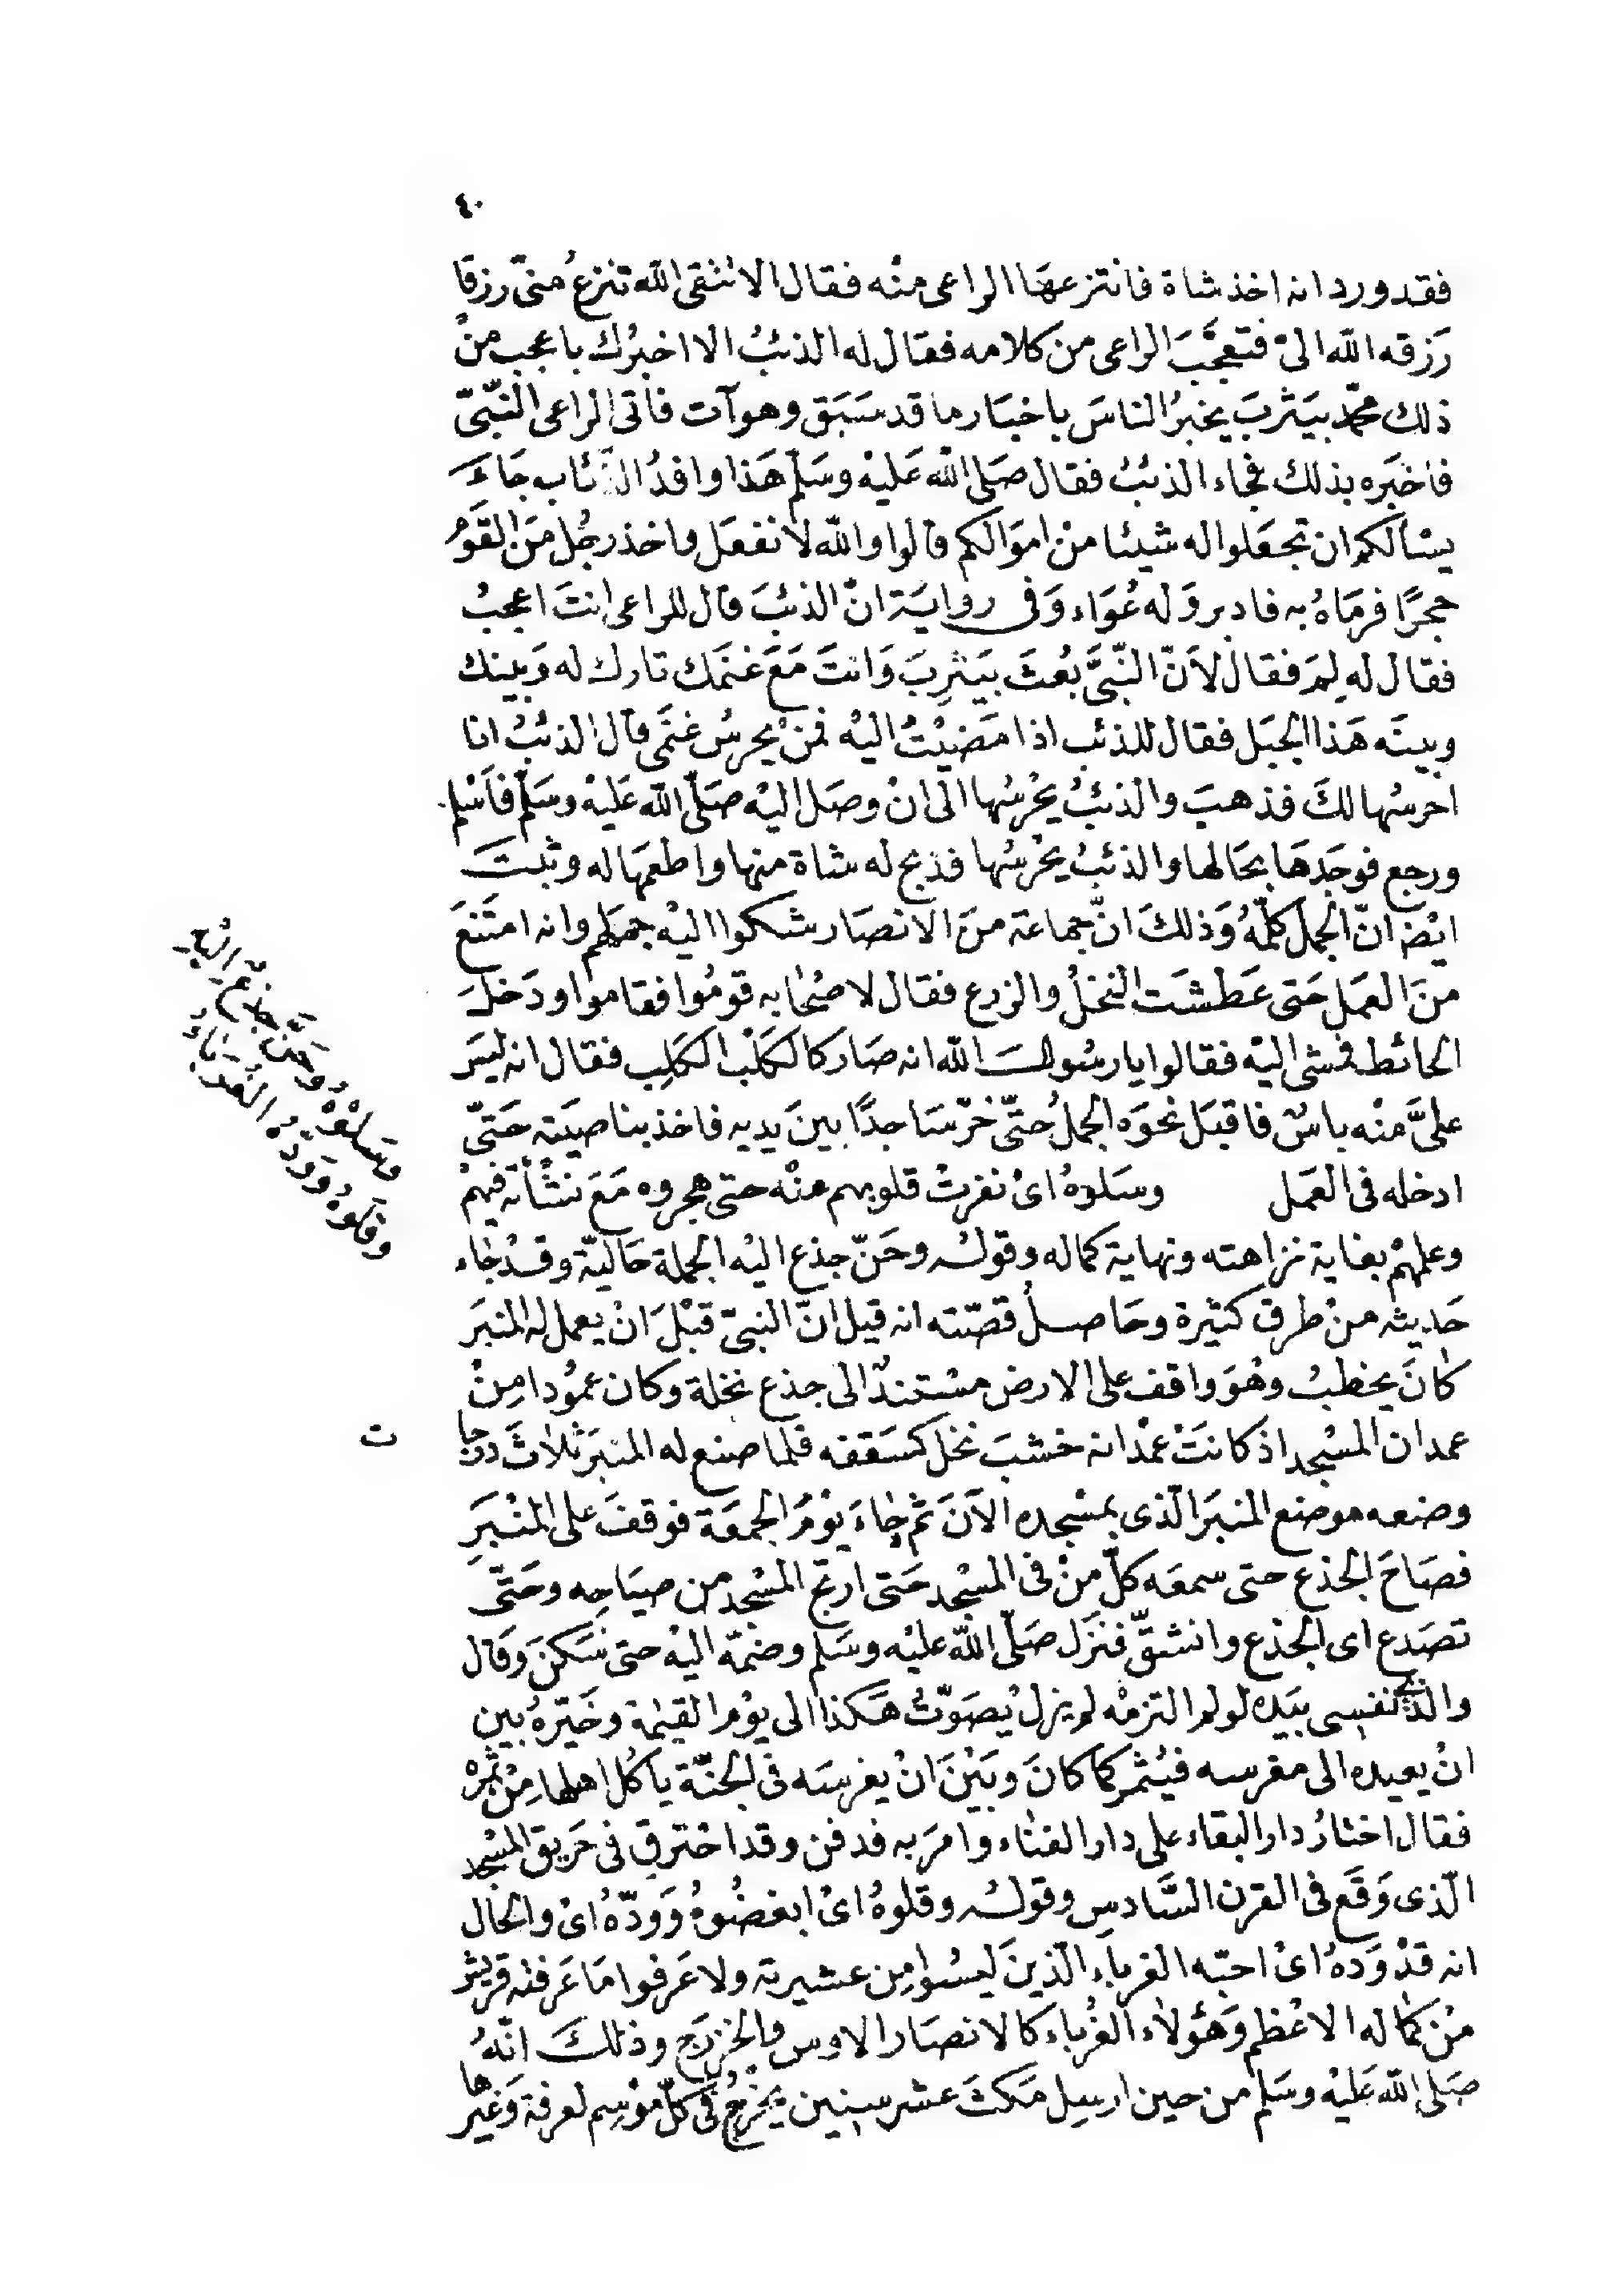 ٤٠
فقد ورد انه اخذ شاة فانتزعهَا الراعى منْه فقال الا تتقى الله تنزعُ منىّ رزقا
رَزقه الله الىّ فتعجّبَ الراعى من كلامه فقال له الذئبُ الا اخبرُك باعجب منْ
ذلك محمّد بيَثربَ يخبرُ الناسَ باخبَار ما قد سَبَق وهو آت فأتى الراعى النّبىّ
فاخبَره بذلك فجاء الذئبُ فقال صَلى الله عَليْه وسَلّم هَذا وافدُ الذّئاب جَاءَ
يسْألكم ان تجعَلوا له شيئا منْ اموَالكم قالوا والله لا نفعَل واخذ رجُل منَ القَوْم
حجرًا فرمَاهُ به فادبر وَله عُوَاء وَفى روايَة انّ الذئبَ قال للراعى انتَ اعجبُ
فقال له لِمَ فقال لاَنّ النّبىَّ بُعثَ بيَثرِبَ وَانتَ مَعَ غنَمَك تارك له وَبينك
وبينَه هَذا الجبَل فقال للذئب اذا مَضيْتُ اليْه فمنْ يحرسُ غنَمى قال الذئبُ انا
احرسُها لكَ فذهبَ والذئبُ يحْرسُها الى انْ وصَل اليْه صَلّى الله عَليْه وسَلّم فأسْلم
ورجع فوجَدهَا بحَالها والذئبُ يحْرسُها فذبح له شاة منها واطعمَها له وثبتَ
ايْضا انّ الجمَل كلّمهُ وَذلكَ انّ جماعَة منَ الانصَار شكوا اليْه جمَلهم وانه امتَنعَ
منَ العمَل حَتى عَطشَت النخلُ والزرع فقال لاصْحابه قومُوا فقاموا ودَخلَ
الحائط فمشى اليْه فقالوا يا رسُول الله انه صَار كالكَلْب الكَلِب فقال انه ليسَ
علىَّ منْه باسٌ فاقبَل نحوَه الجملُ حتّى خرّ سَاجدًا بينَ يديه فاخذ بناصيَته حَتىّ
ادخله فى العمَل وسَلوهُ اىْ نفرتْ قلوبهم عنْه حتى هجروه مَعَ نشْأته فيهمْ
وعلمهمْ بغاية نزاهته ونهاية كماله وقوله وحَنّ جذع اليْه الجملة حَاليّة وقدْ جَاء
حَديثه منْ طرق كثيرة وحَاصلُ قصّته انه قيل انّ النبىّ قبْلَ انْ يعمل له المنبَر
كانَ يخطبُ وهْوَ واقف على الارض مسْتندٌ الى جذع نخلة وكان عمُودا مِنْ
عمدان المسْجد اذ كانتْ عمْدانه خشبَ نخل كسَقفه فلما صنع له المنبَر ثلاثَ درجا
ت
وضعه موضع المنبَر الّذى بمسْجده الآنَ ثم جاءَ يوْمَ الجمعَة فوقفَ على المنْبَرِ
فصَاحَ الجذع حتى سمعَه كلّ منْ فى المسْجد حَتى ارتج المسْجد من صيَاحِه وحَتّى
تصَدع اى الجذع وانشقّ فنَزَل صَلّى الله عليْه وسَلم وضمّه اليْه حتى سَكنَ وَقال
والذى نفسى بيَده لو لم التزمْه لم يزل يُصَوّتُ هكذا الى يوْم القيٰمة وخَيّرهُ بين
انْ يعيده الى مغرسه فيُثمر كما كانَ وبَيْنَ انْ يغرسَه فى الجنّة يأكُل اهلها مِنْ ثمره
فقال اختارُ دار البقاء على دار الفنَاء وامرَ به فدفن وقد احْترق فى حَريق المسْجد
الّذى وَقَع فى القرن السَّادسِ وقوله وقلوهُ اىْ ابغضُوهُ وَوَدّهُ اىْ والحال
انه قدْ وَدهُ اىْ احبّه الغرباء الّذينَ ليسُوا مِن عشيرته ولا عَرفوا مَا عَرفته قريش
منْ كماله الاعْظم وَهؤلاء الغُرباء كالانصَار الاوس والخزرَج وذلكَ انّهُ
صَلى الله عَليْه وسَلم من حين ارسِل مَكثَ عشر سِنين يخْرجُ فى كلّ موْسِم لعرفة وَغيرها
وسَلوْهُ وحَنّ جذعٌ اليْه
وقلَوْهُ وَودّهُ الغُرَبَاءُ